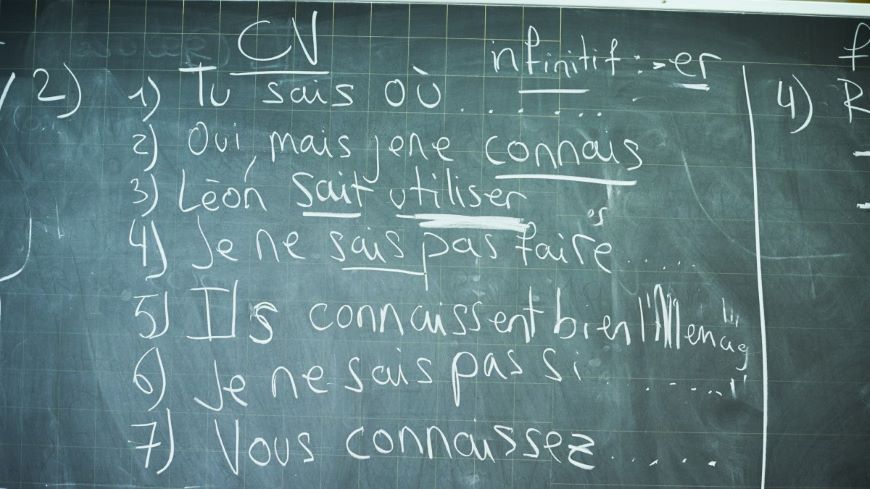 CV
infinitif :→er
2) 1) Tu sais où ......
2) Oui, mais je ne connais
3) Léon sait utiliser
4) Je ne sais pas faire .....
5) Ils connaissent bien
6) Je ne sais pas si .....
7) Vous connaissez .....
4) R